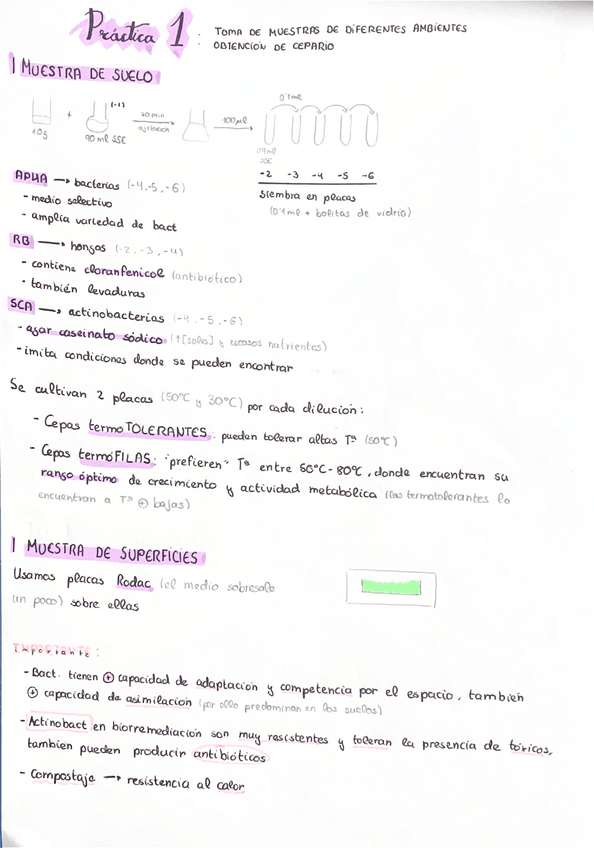 Práctica 1 : TOMA DE MUESTRAS DE DIFERENTES AMBIENTES
OBTENCIÓN DE CEPARIO
| MUESTRA DE SUELO
10g + (-1) 90 ml SSE 20 min agitación 100µl 0'1ml
-2 -3 -4 -5 -6
Siembra en placas
(0'1ml + bolitas de vidrio)
APHA → bacterias (-4,-5,-6)
- medio selectivo
- amplia variedad de bact
RB → hongos (-2,-3,-4)
- contiene cloranfenicol (antibiótico)
- también levaduras
SCA → actinobacterias (-4,-5,-6)
- agar caseinato sódico (↑[sales] y escasos nutrientes)
- imita condiciones donde se pueden encontrar
Se cultivan 2 placas (50ºC y 30ºC) por cada dilución:
- Cepas termoTOLERANTES: pueden tolerar altas Tª (50ºC)
- Cepas termóFILAS: "prefieren" Tª entre 50ºC-80ºC, donde encuentran su
rango óptimo de crecimiento y actividad metabólica (las termotolerantes lo
encuentran a Tª ⊕ bajas)
| MUESTRA DE SUPERFICIES
Usamos placas Rodac (el medio sobresale
un poco) sobre ellas
IMPORTANTE:
- Bact. tienen ⊕ capacidad de adaptación y competencia por el espacio, también
⊕ capacidad de asimilación (por ello predominan en los suelos)
- Actinobact en biorremediación son muy resistentes y toleran la presencia de tóxicos,
también pueden producir antibióticos
- Compostaje → resistencia al calor